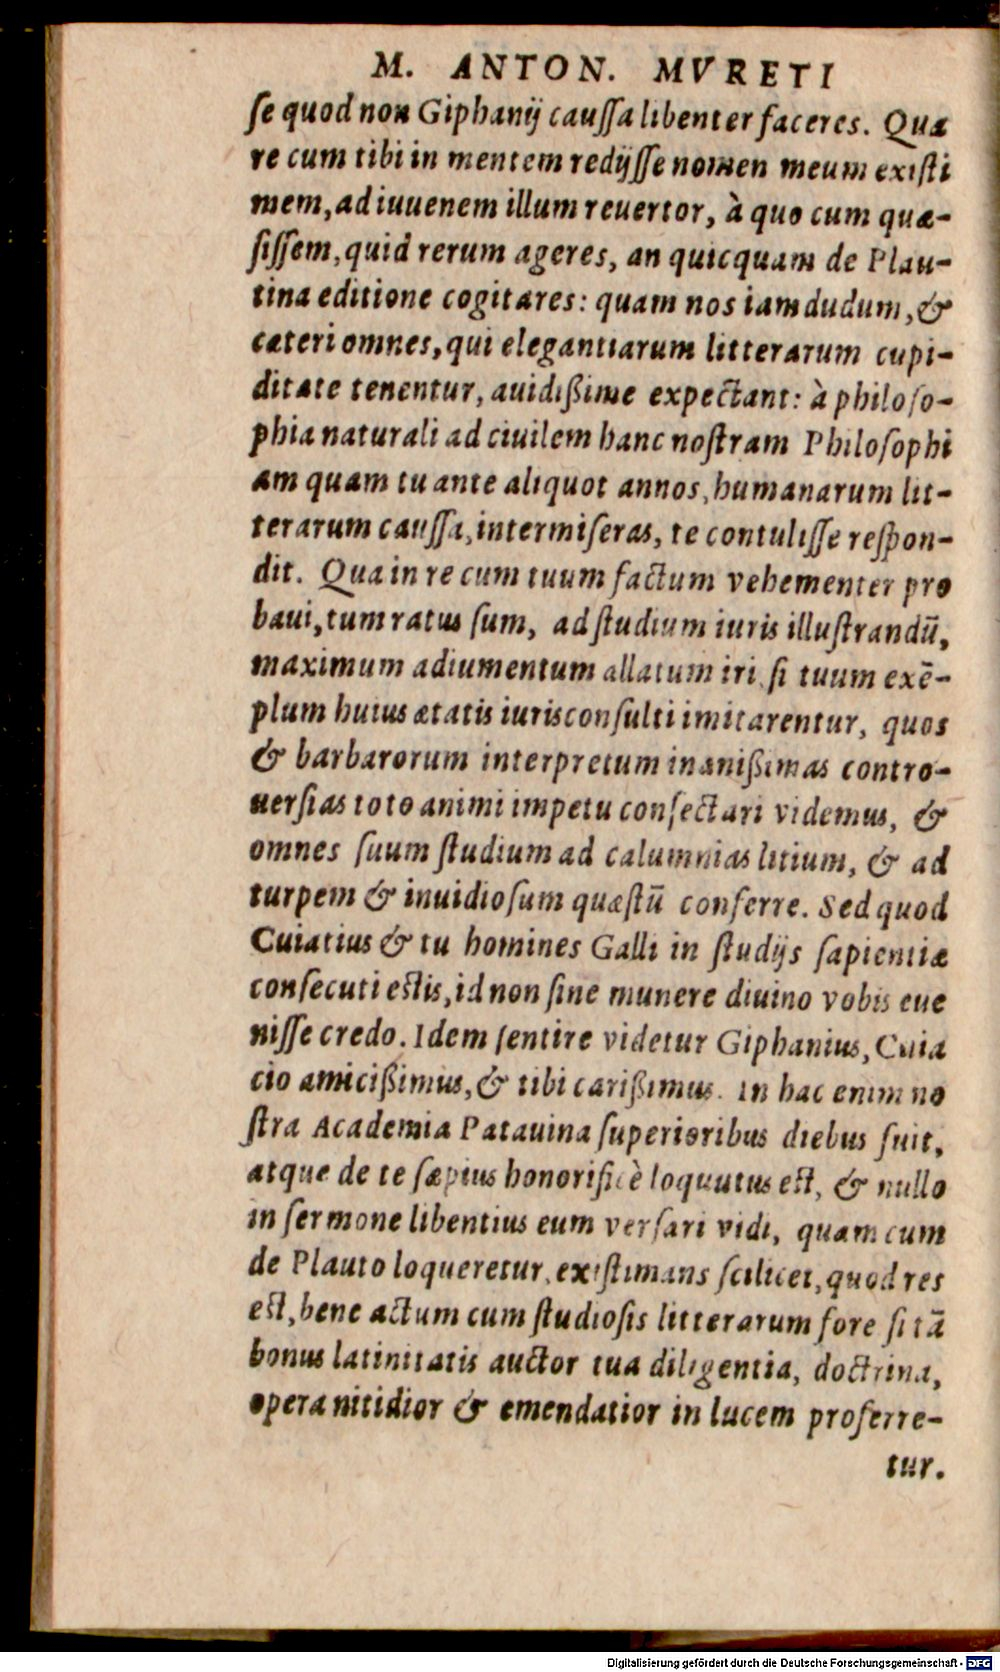 M. ANTON. MVRETI
ſe quod non Giphanij cauſſa libenter faceres. Qua
re cum tibi in mentem redijſſe nomen meum exiſti
mem, ad iuuenem illum reuertor, à quo cum quæ-
ſiſſem, quid rerum ageres, an quicquam de Plau-
tina editione cogitares: quam nos iamdudum, &
cæteri omnes, qui elegantiarum litterarum cupi-
ditate tenentur, auidißime expectant: à philoſo-
phia naturali ad ciuilem hanc noſtram Philoſophi
am quam tu ante aliquot annos, humanarum lit-
terarum cauſſa, intermiſeras, te contuliſſe reſpon-
dit. Qua in re cum tuum factum vehementer pro
baui, tum ratus ſum, ad ſtudium iuris illuſtrandũ,
maximum adiumentum allatum iri, ſi tuum exẽ-
plum huius ætatis iurisconſulti imitarentur, quos
& barbarorum interpretum inanißimas contro-
uerſias toto animi impetu conſectari videmus, &
omnes ſuum ſtudium ad calumnias litium, & ad
turpem & inuidioſum quæſtũ conferre. Sed quod
Cuiatius & tu homines Galli in ſtudijs ſapientiæ
conſecuti eſtis, id non ſine munere diuino vobis eue
niſſe credo. Idem ſentire videtur Giphanius, Cuia
cio amicißimus, & tibi carißimus. In hac enim no
ſtra Academia Patauina ſuperioribus diebus fuit,
atque de te ſæpius honorificè loquutus eſt, & nullo
in ſermone libentius eum verſari vidi, quam cum
de Plauto loqueretur, exiſtimans ſcilicet, quod res
eſt, bene actum cum ſtudioſis litterarum fore ſi tã
bonus latinitatis auctor tua diligentia, doctrina,
opera nitidior & emendatior in lucem proferre-
tur.
Digitalisierung gefördert durch die Deutsche Forschungsgemeinschaft - DFG